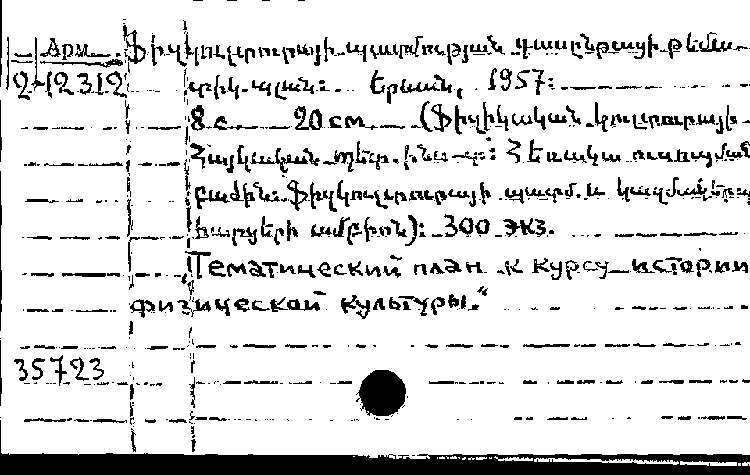 Арм.
2-12312
Ֆիզկուլտուրայի պատմության դասընթացի թեմա-
տիկ պլան: Երևան, 1957:
8 с. 20 см (Ֆիզիկական կուլտուրայի
Հայկական պետ. ինս-տ: Հեռակա ուսուցման
բաժին: Ֆիզկուլտուրայի պատմ. և կազմակերպ
հարցերի ամբիոն): 300 экз.
„Тематический план к курсу истории
физической культуры.“
35723